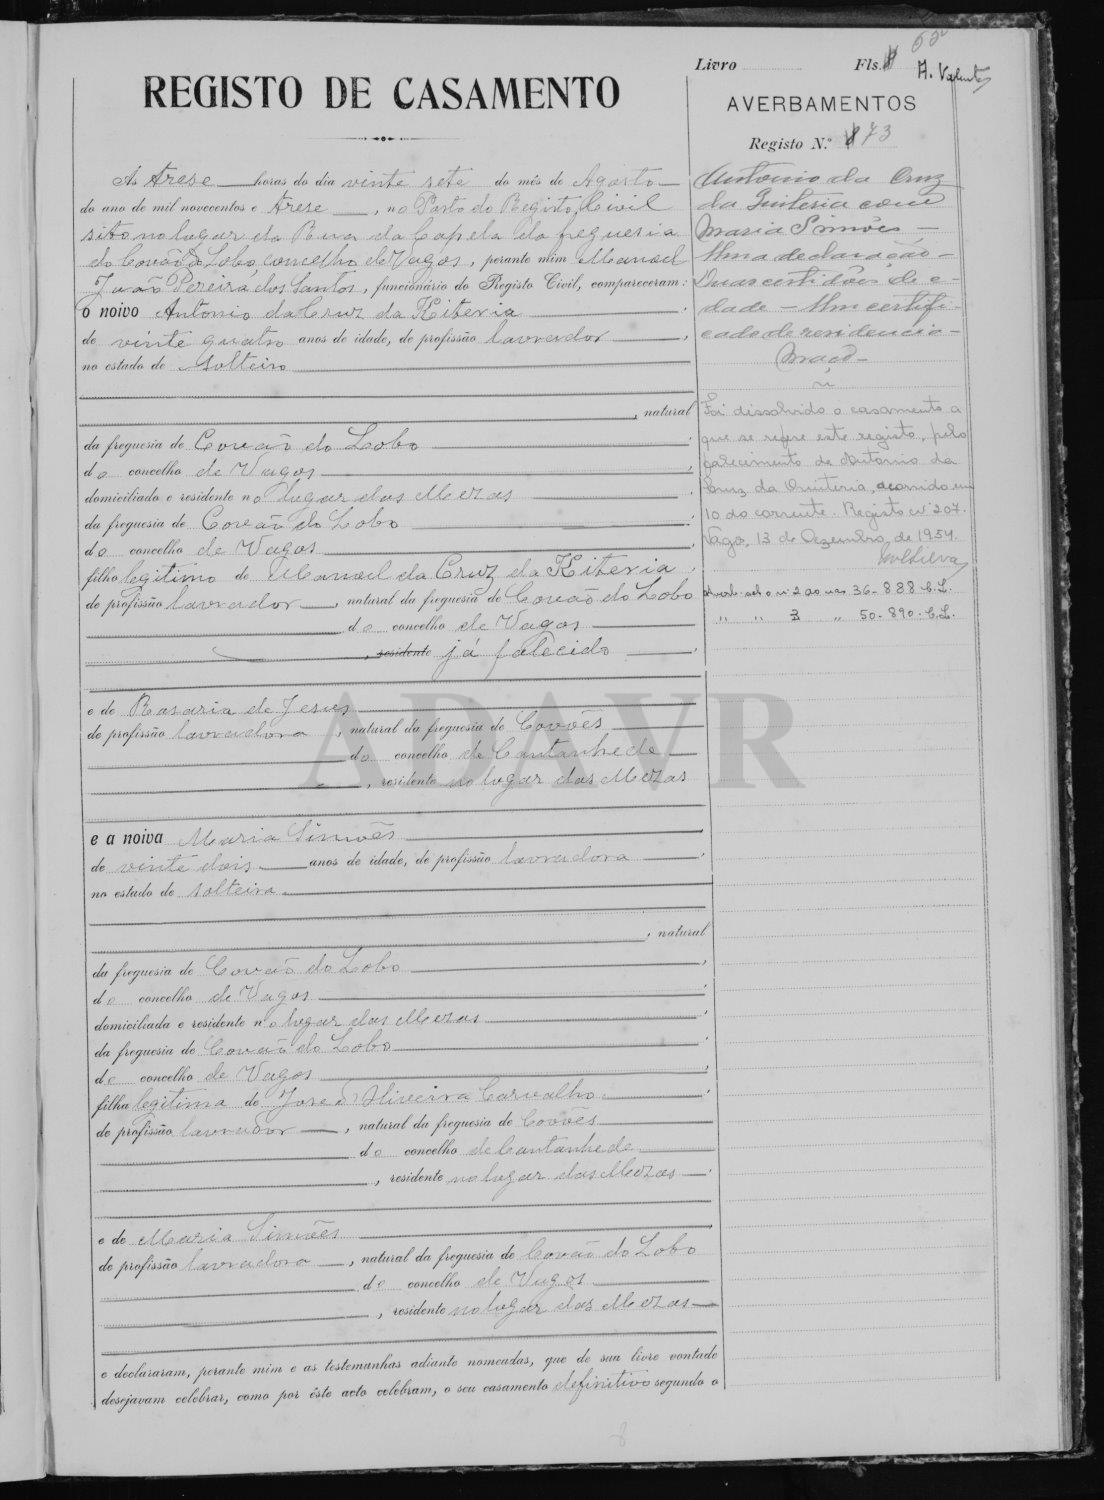 REGISTO DE CASAMENTO
Ás Trese horas do dia vinte sete do mês de Agosto
do ano de mil novecentos e Trese, no Posto do Registo Civil
sito no lugar da Rua da Capela da freguesia
do Covão do Lobo, concelho de Vagos, perante mim Manoel
João Pereira dos Santos, funcionário do Registo Civil, compareceram:
o noivo Antonio da Cruz da Kiteria,
de vinte quatro anos de idade, de profissão lavrador,
no estado de solteiro
, natural
da freguesia de Covão do Lobo,
do concelho de Vagos,
domiciliado e residente no lugar das Mezas
da freguesia de Covão do Lobo,
do concelho de Vagos,
filho legitimo de Manoel da Cruz da Kiteria,
de profissão lavrador, natural da freguesia de Covão do Lobo
do concelho de Vagos
, residente já falecido,
e de Rosaria de Jesus
de profissão lavradora, natural da freguesia de Covões
do concelho de Cantanhede
, residente no lugar das Mezas
e a noiva Maria Simões,
de vinte dois anos de idade, de profissão lavradora,
no estado de solteira
, natural
da freguesia de Covão do Lobo,
do concelho de Vagos,
domiciliada e residente no lugar das Mezas,
da freguesia de Covão do Lobo,
do concelho de Vagos,
filha legitima de José d'Oliveira Carvalho,
de profissão lavrador, natural da freguesia de Covões
do concelho de Cantanhede
, residente no lugar das Mezas,
e de Maria Simões,
de profissão lavradora, natural da freguesia de Covão do Lobo
do concelho de Vagos
, residente no lugar das Mezas
e declararam, perante mim e as testemunhas adiante nomeadas, que de sua livre vontade
desejavam celebrar, como por êste acto celebram, o seu casamento definitivo segundo o
8
Livro Fls.
A. Valente
AVERBAMENTOS
Registo N.º 73
Antonio da Cruz
da Quiteria com
Maria Simões —
Uma declaração —
Duas certidões de e-
dade — Um certifi-
cado de residencia —
Foi dissolvido o casamento a
que se refere este registo, pelo
falecimento de Antonio da
Cruz da Quiteria, ocorrido em
10 do corrente. Registo nº 207.
Vagos, 13 de Dezembro de 1954.
36-888
" " 3 " 50-890
ADAVR